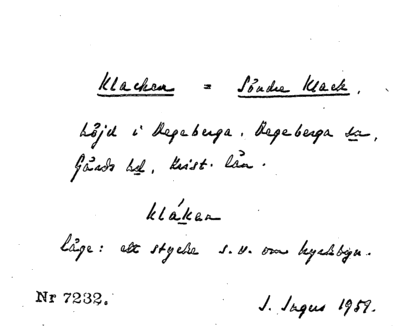 Klacken = Södra Klack.
höjd i Degeberga. Degeberga sn,
Gärds hd, Krist. län.
klákan
läge: ett stycke s.v. om kyrkbyn.
Nr 7232. J. Ingers 1959.